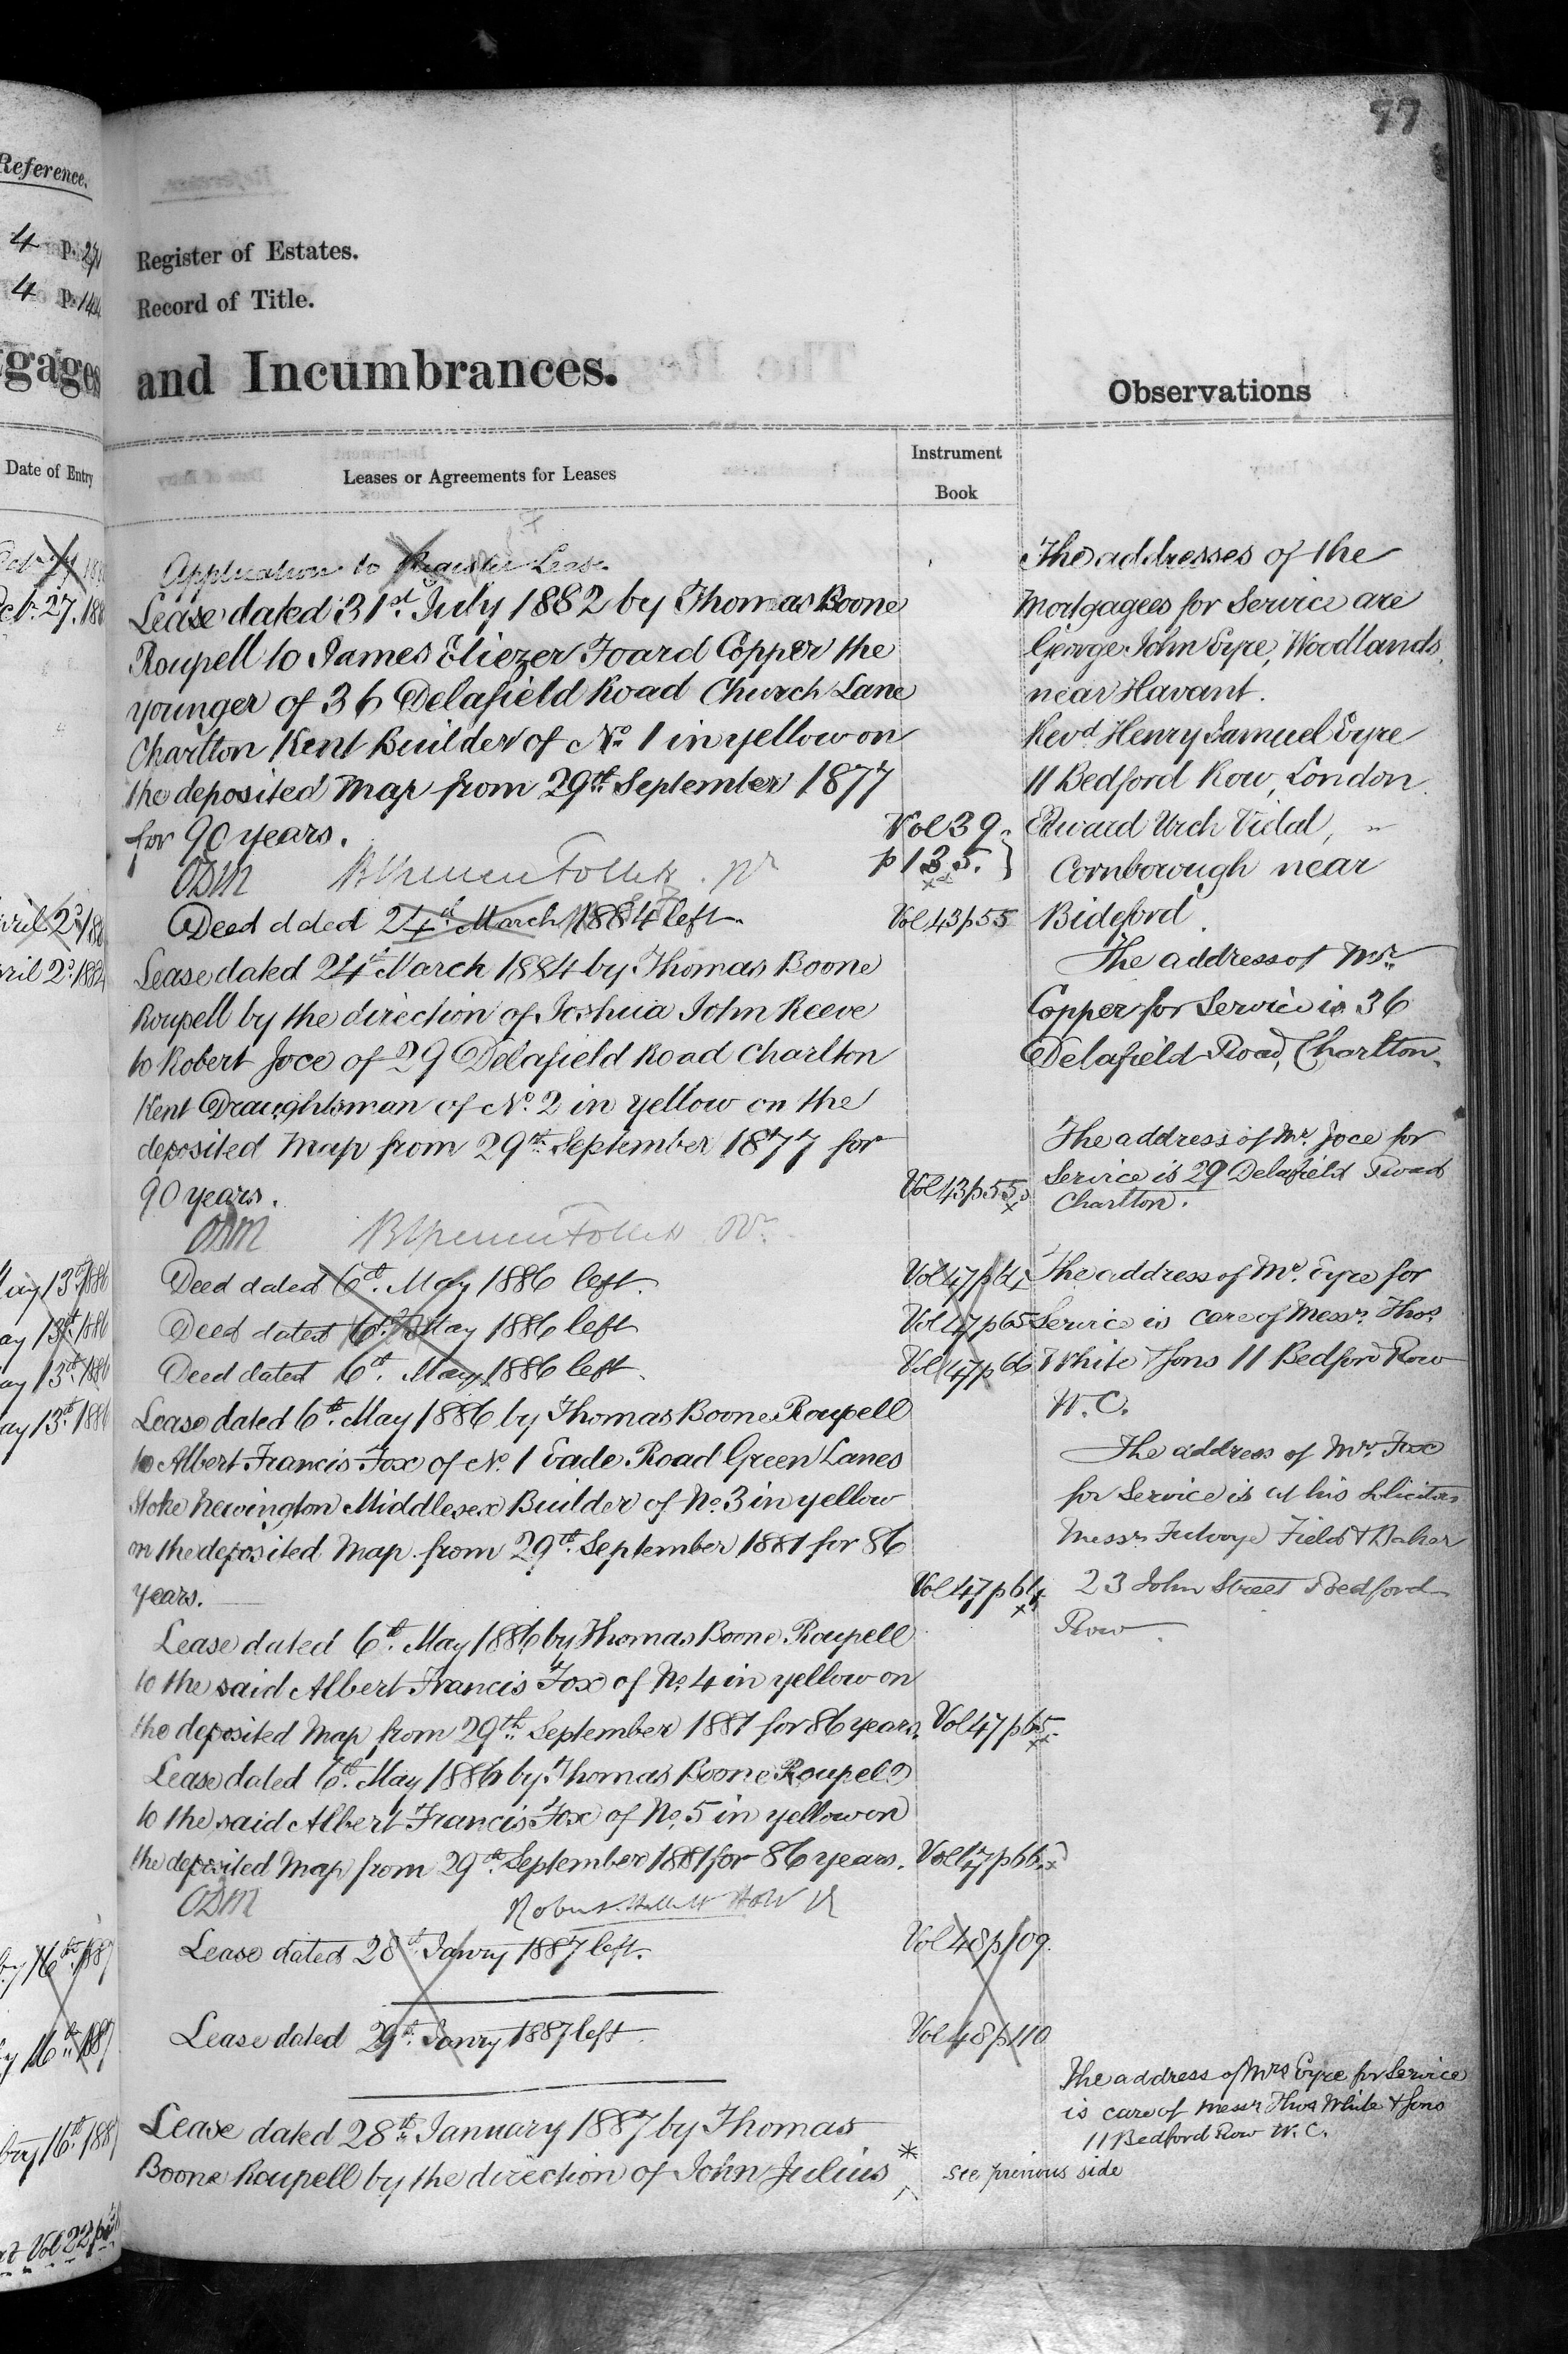 97
Reference.
4 p. 271
4 p. 144
Register of Estates.
Record of Title.
gages
and Incumbrances.
Observations
Date of Entry
Leases or Agreements for Leases
Instrument
Book
Application to Register Lease
27. 188
Lease dated 31st July 1882 by Thomas Boone
Roupell to James Eliezer Foard Copper the
younger of 36 Delafield Road Church Lane
Charlton Kent Builder of No. 1 in yellow on
the deposited Map from 29th September 1877
for 90 years.
Vol 39.
p 135.
Deed dated 24th March 1884 left
Vol 43 p 55
ril 2d 188
ril 2d 1884
Lease dated 24th March 1884 by Thomas Boone
Roupell by the direction of Joshua John Reeve
to Robert Joce of 29 Delafield Road Charlton
Kent Draughtsman of No. 2 in yellow on the
deposited Map from 29th September 1877 for
90 years.
Vol 43 p 55
ay 13th 1886
Deed dated 6th May 1886 left.
Vol 47 p 64
ay 13th 1886
Deed dated 6th May 1886 left
Vol 47 p 65
ay 13th 188
Deed dated 6th May 1886 left.
Vol 47 p 66
ay 13th 1886
Lease dated 6th May 1886 by Thomas Boone Roupell
to Albert Francis Fox of No. 1 Eade Road Green Lanes
Stoke Newington Middlesex Builder of No. 3 in yellow
on the deposited Map from 29th September 1881 for 86
years.
Vol 47 p 64
Lease dated 6th May 1886 by Thomas Boone Roupell
to the said Albert Francis Fox of No. 4 in yellow on
the deposited Map from 29th September 1881 for 86 years.
Vol 47 p 65
Lease dated 6th May 1886 by Thomas Boone Roupell
to the said Albert Francis Fox of No. 5 in yellow on
the deposited Map from 29th September 1881 for 86 years.
Vol 47 p 66
y 16th 1887
Lease dated 28th Janry 1887 left.
Vol 48 p 109.
y 16th 1887
Lease dated 29th Janry 1887 left
Vol 48 p 110
16th 1887
Lease dated 28th January 1887 by Thomas
Boone Roupell by the direction of John Julius *
see previous side
Vol 22 p
The addresses of the
Mortgagees for Service are
George John Eyre, Woodlands,
near Havant.
Revd. Henry Samuel Eyre
11 Bedford Row, London.
Edward Urch Vidal,
Cornborough near
Bideford.
The address of Mr.
Copper for Service is 36
Delafield Road, Charlton.
The address of Mr. Joce for
Service is 29 Delafield Road
Charlton.
The address of Mr. Eyre for
Service is care of Messrs. Thos.
White & Sons 11 Bedford Row
W.C.
The address of Mr. Fox
for Service is at his Solicitors
Messrs Field & Baker
23 John Street Bedford
Row.
The address of Mrs Eyre for Service
is care of Messrs Thos White & Sons
11 Bedford Row W.C.